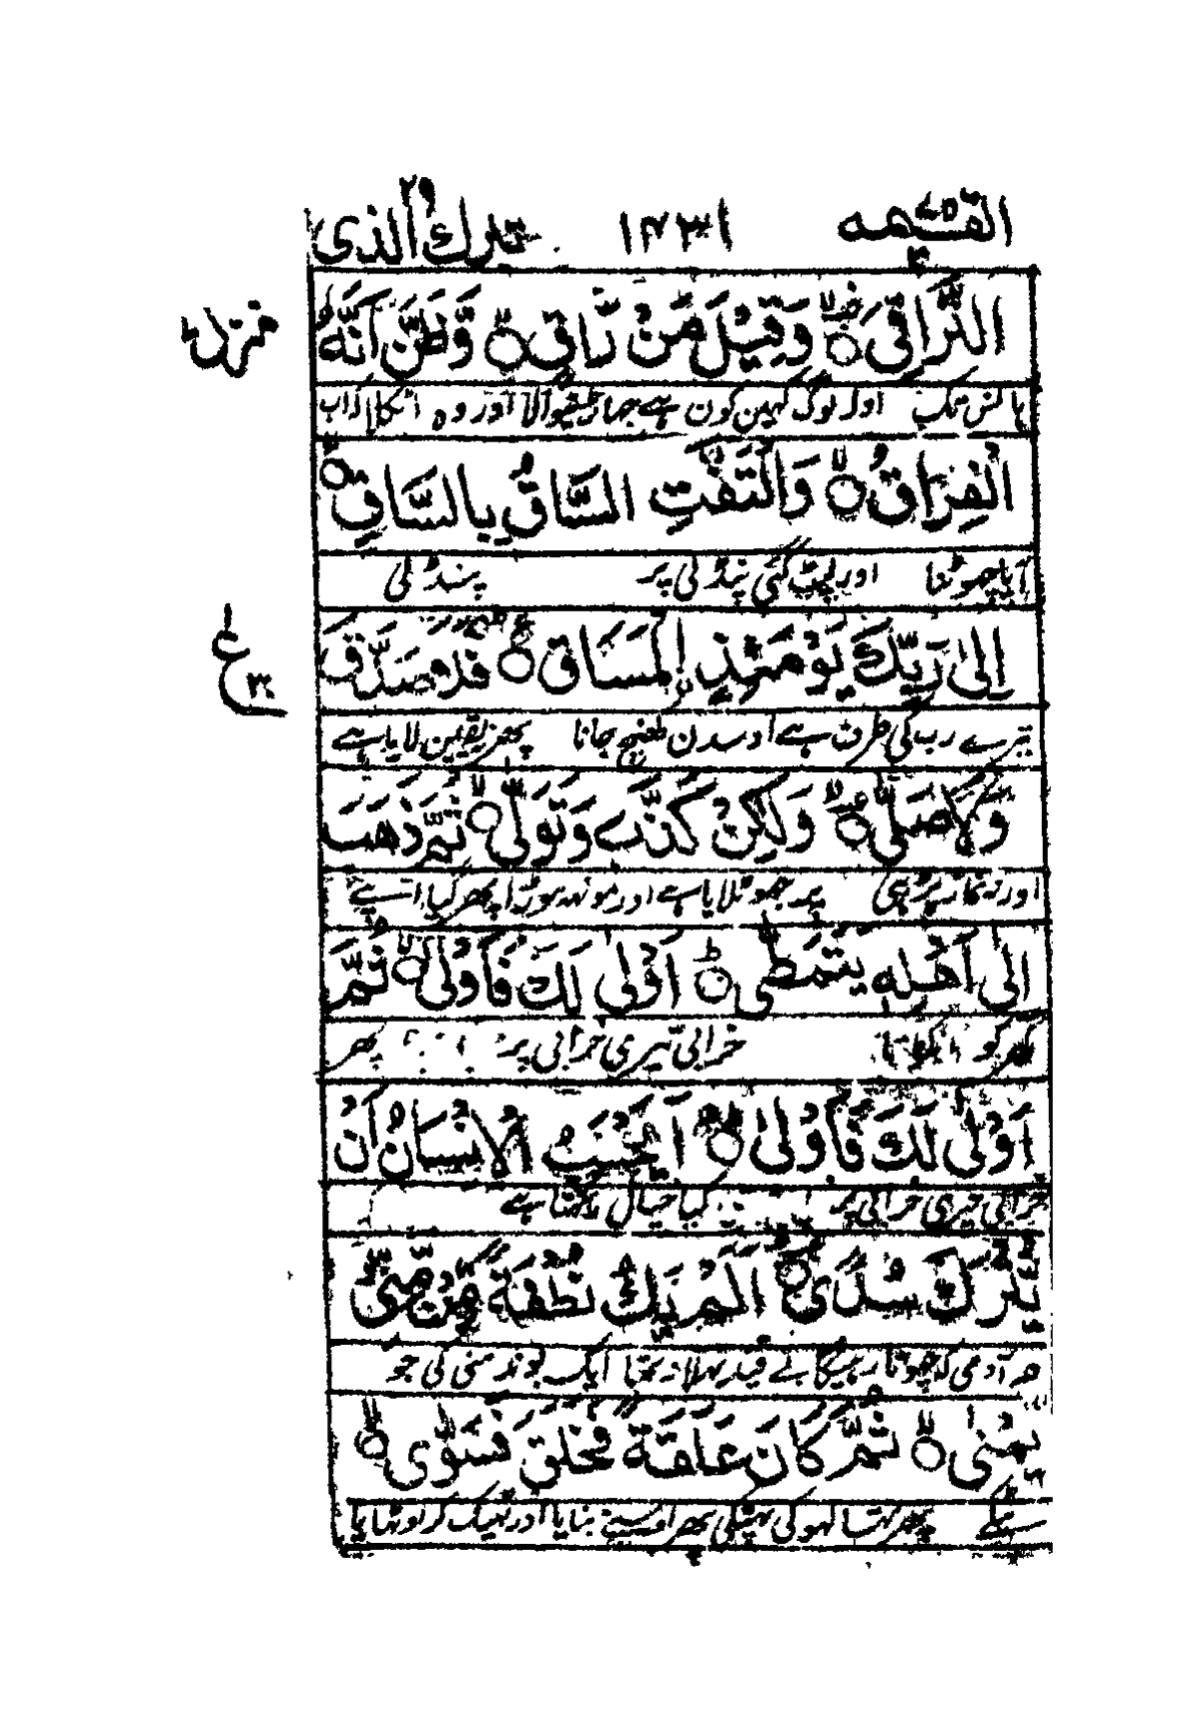 القیٰمه ٧٥ ١٤٣١ تبٰرك الذی ٢٩
التَّرَاقِیَ ۝ وَقِیْلَ مَنْ رَاقٍ ۝ وَّظَنَّ اَنَّهُ
منزل
ہانس تک اور لوگ کہین کون ہے جھاڑنیوالا اور وہ اٹکلا کہ اب
الْفِرَاقُ ۝ وَالْتَفَّتِ السَّاقُ بِالسَّاقِ ۝
آیا چھوٹنا اور لپٹ گئی پنڈلی پر پنڈلی
اِلٰی رَبِّكَ یَوْمَئِذِ اِلْمَسَاقُ ۝ فَلَا صَدَّقَ
ع
تیرے رب کی طرف ہے اوسدن کھنچ جانا پھر نہ یقین لایا ہے
وَلَا صَلّٰی ۝ وَلٰكِنْ كَذَّبَ وَتَوَلّٰی ۝ ثُمَّ ذَهَبَ
اور نہ نماز پڑھی پر جھوٹلایا ہے اور مونہہ موڑا پھر گیا اپنے
اِلٰٓی اَهْلِهٖ یَتَمَطّٰی ۝ اَوْلٰی لَكَ فَاَوْلٰی ۝ ثُمَّ
گھر کو خرابی تیری خرابی پر پھر
اَوْلٰی لَكَ فَاَوْلٰی ۝ اَیَحْسَبُ الْاِنْسَانُ اَنْ
خرابی تیری خرابی پر کیا خیال رکھتا ہے
یُّتْرَكَ سُدًی ۝ اَلَمْ یَكُ نُطْفَةً مِّنْ مَّنِیٍّ
آدمی کہ چھوٹا رہیگا بے قید بھلا نہ تھا ایک بوند منی کی جو
یُّمْنٰی ۝ ثُمَّ كَانَ عَلَقَةً فَخَلَقَ فَسَوّٰی ۝
پھر تھا لہو کی پھٹکی پھر اوسنے بنایا اور ٹھیک کر اوٹھایا